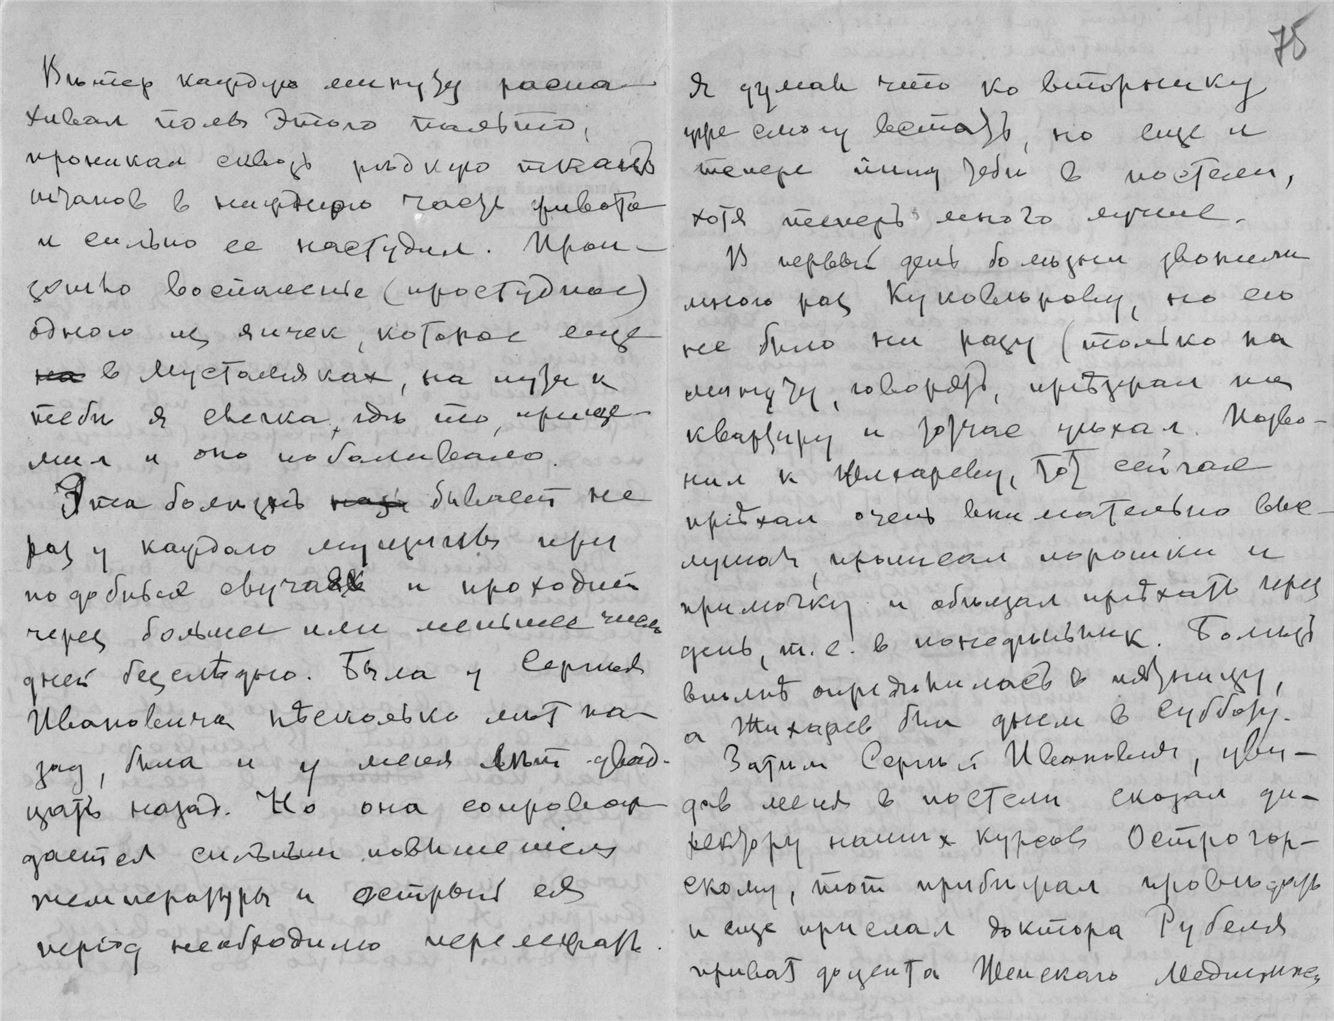 Вѣтер каждую минуту распа-
хивал полы этого пальто,
проникал сквозь рѣдкую ткань
штанов в нижнюю часть живота
и сильно ее настудил. Прои-
зошло воспаление (простудное)
одного из яичек, которое еще
на в Мустамяках, на пути к
тебѣ я слегка, гдѣ то, прище-
мил и оно побаливало.
Эта болѣзнь бывает не
раз у каждаго мущины при
подобных случаях и проходит
через больше или меньшее число
дней безслѣдно. Была у Сергѣя
Ивановича нѣсколько лѣт на-
зад, была и у меня лѣт двад-
цать назад. Но она сопровож-
дается сильным повышением
температуры и острый ея
період необходимо перележать.
75
Я думал что ко вторнику
уже смогу встать, но еще и
теперь пишу тебѣ в постели,
хотя теперь много лучше.
В первый день болѣзни звонили
много раз Куковѣрову, но его
не было ни разу (только на
минуту, говорят, приѣзжал на
квартиру и тотчас уѣхал. Позво-
нил к Жихареву, тот сейчас
приѣхал очень внимательно выс-
лушал, прописал порошки и
примочку и обѣщал приѣхать через
день, т.е. в понедѣльник. Болѣзнь
вполнѣ опредѣлилась в пятницу,
а Жихарев был днем в субботу.
Затѣм Сергѣй Иванович, уви-
дав меня в постели сказал ди-
ректору наших курсов Острогор-
скому, тот прибѣжал провѣдать
и еще прислал доктора Рубеля
приват доцента Женскаго Медицинск.